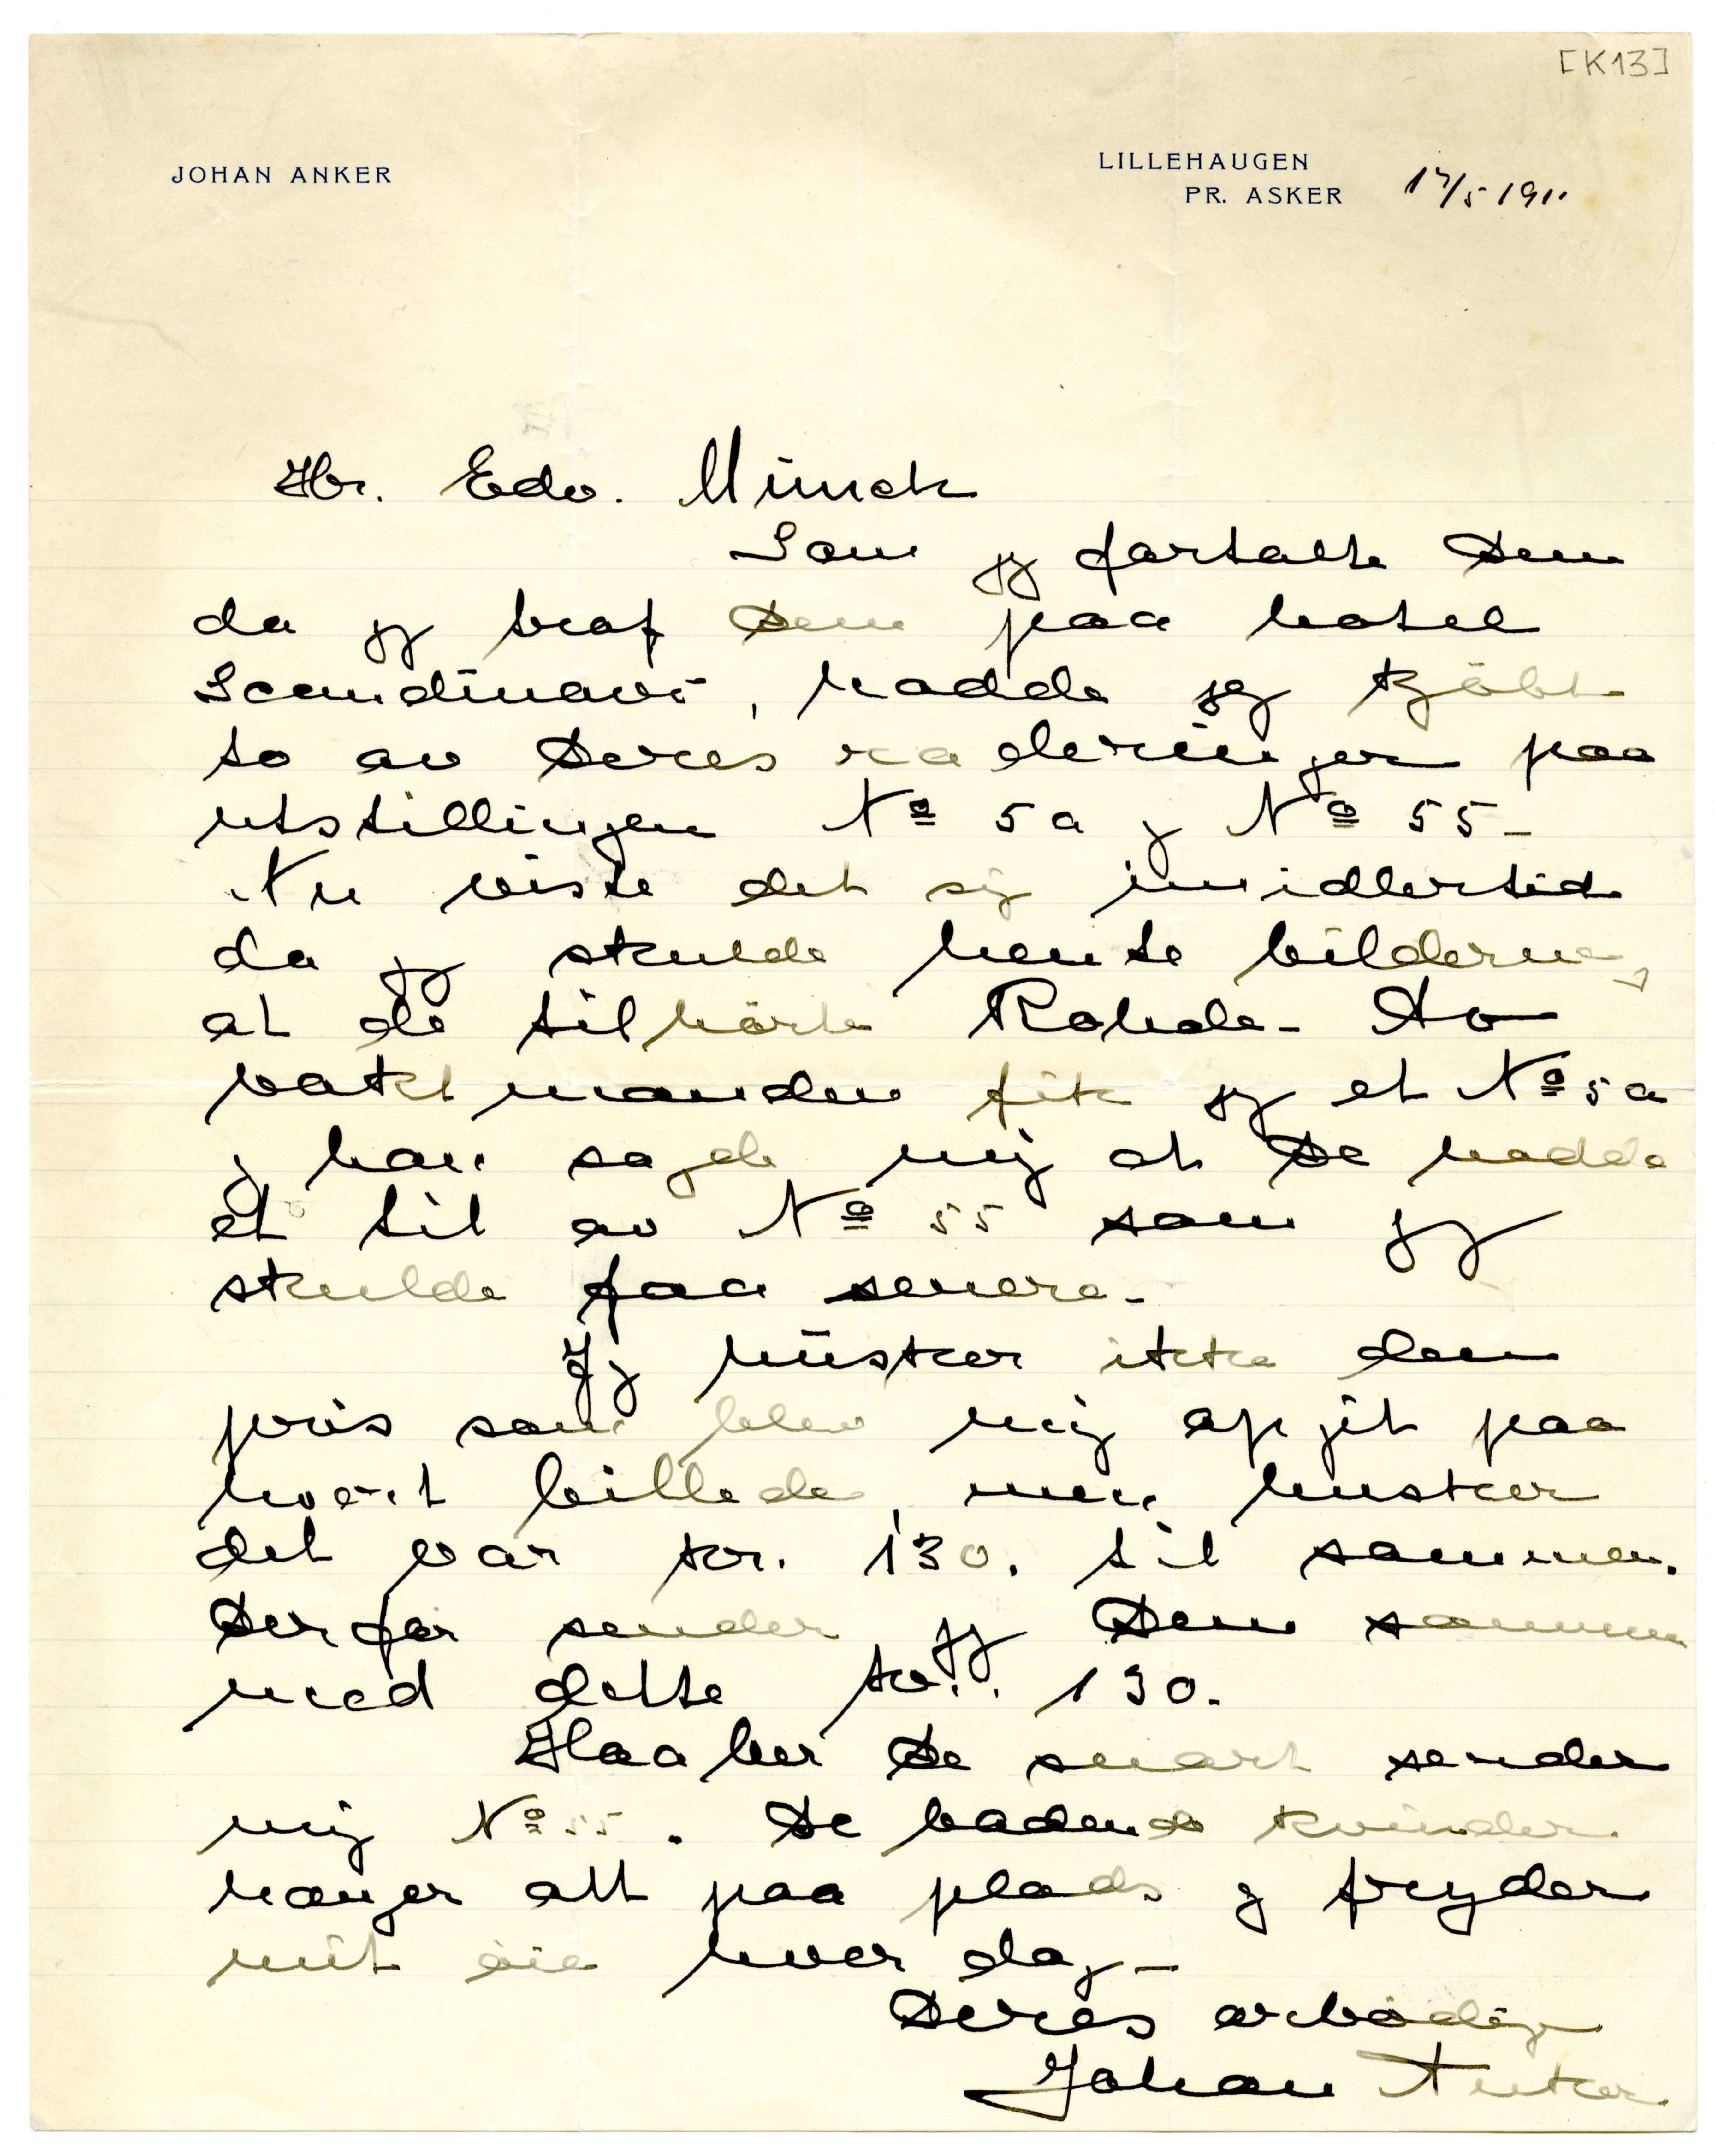 [K13]
JOHAN ANKER
LILLEHAUGEN
PR. ASKER 17/5 1911
Hr. Edv. Münch
Som jeg fortalte Dem
da jeg traf Dem paa hotel
Scandinavi, hadde jeg kjöbt
to av Deres raderinger paa
utstillingen Nº 5a og Nº 55 –
Nu viste det sig imidlertid
da jeg skulde hente bilderne,
at de tilhörte Rohde – Av
vaktmanden fik jeg et Nº 5a
og han sagde mig at De hadde
et til av Nº 55 som jeg
skulde faa senere –
Jeg husker ikke den
pris som blev mig opgit paa
hvert billede, men husker
det var kr. 130. til sammen.
Derfor sender jeg Dem sammen
med dette kr. 130.
Haaber De snart sender
mig Nº 55. De badende kvinder
hænger alt paa plads og fryder
mit öie hver dag –
Deres ærbödige
Johan Anker